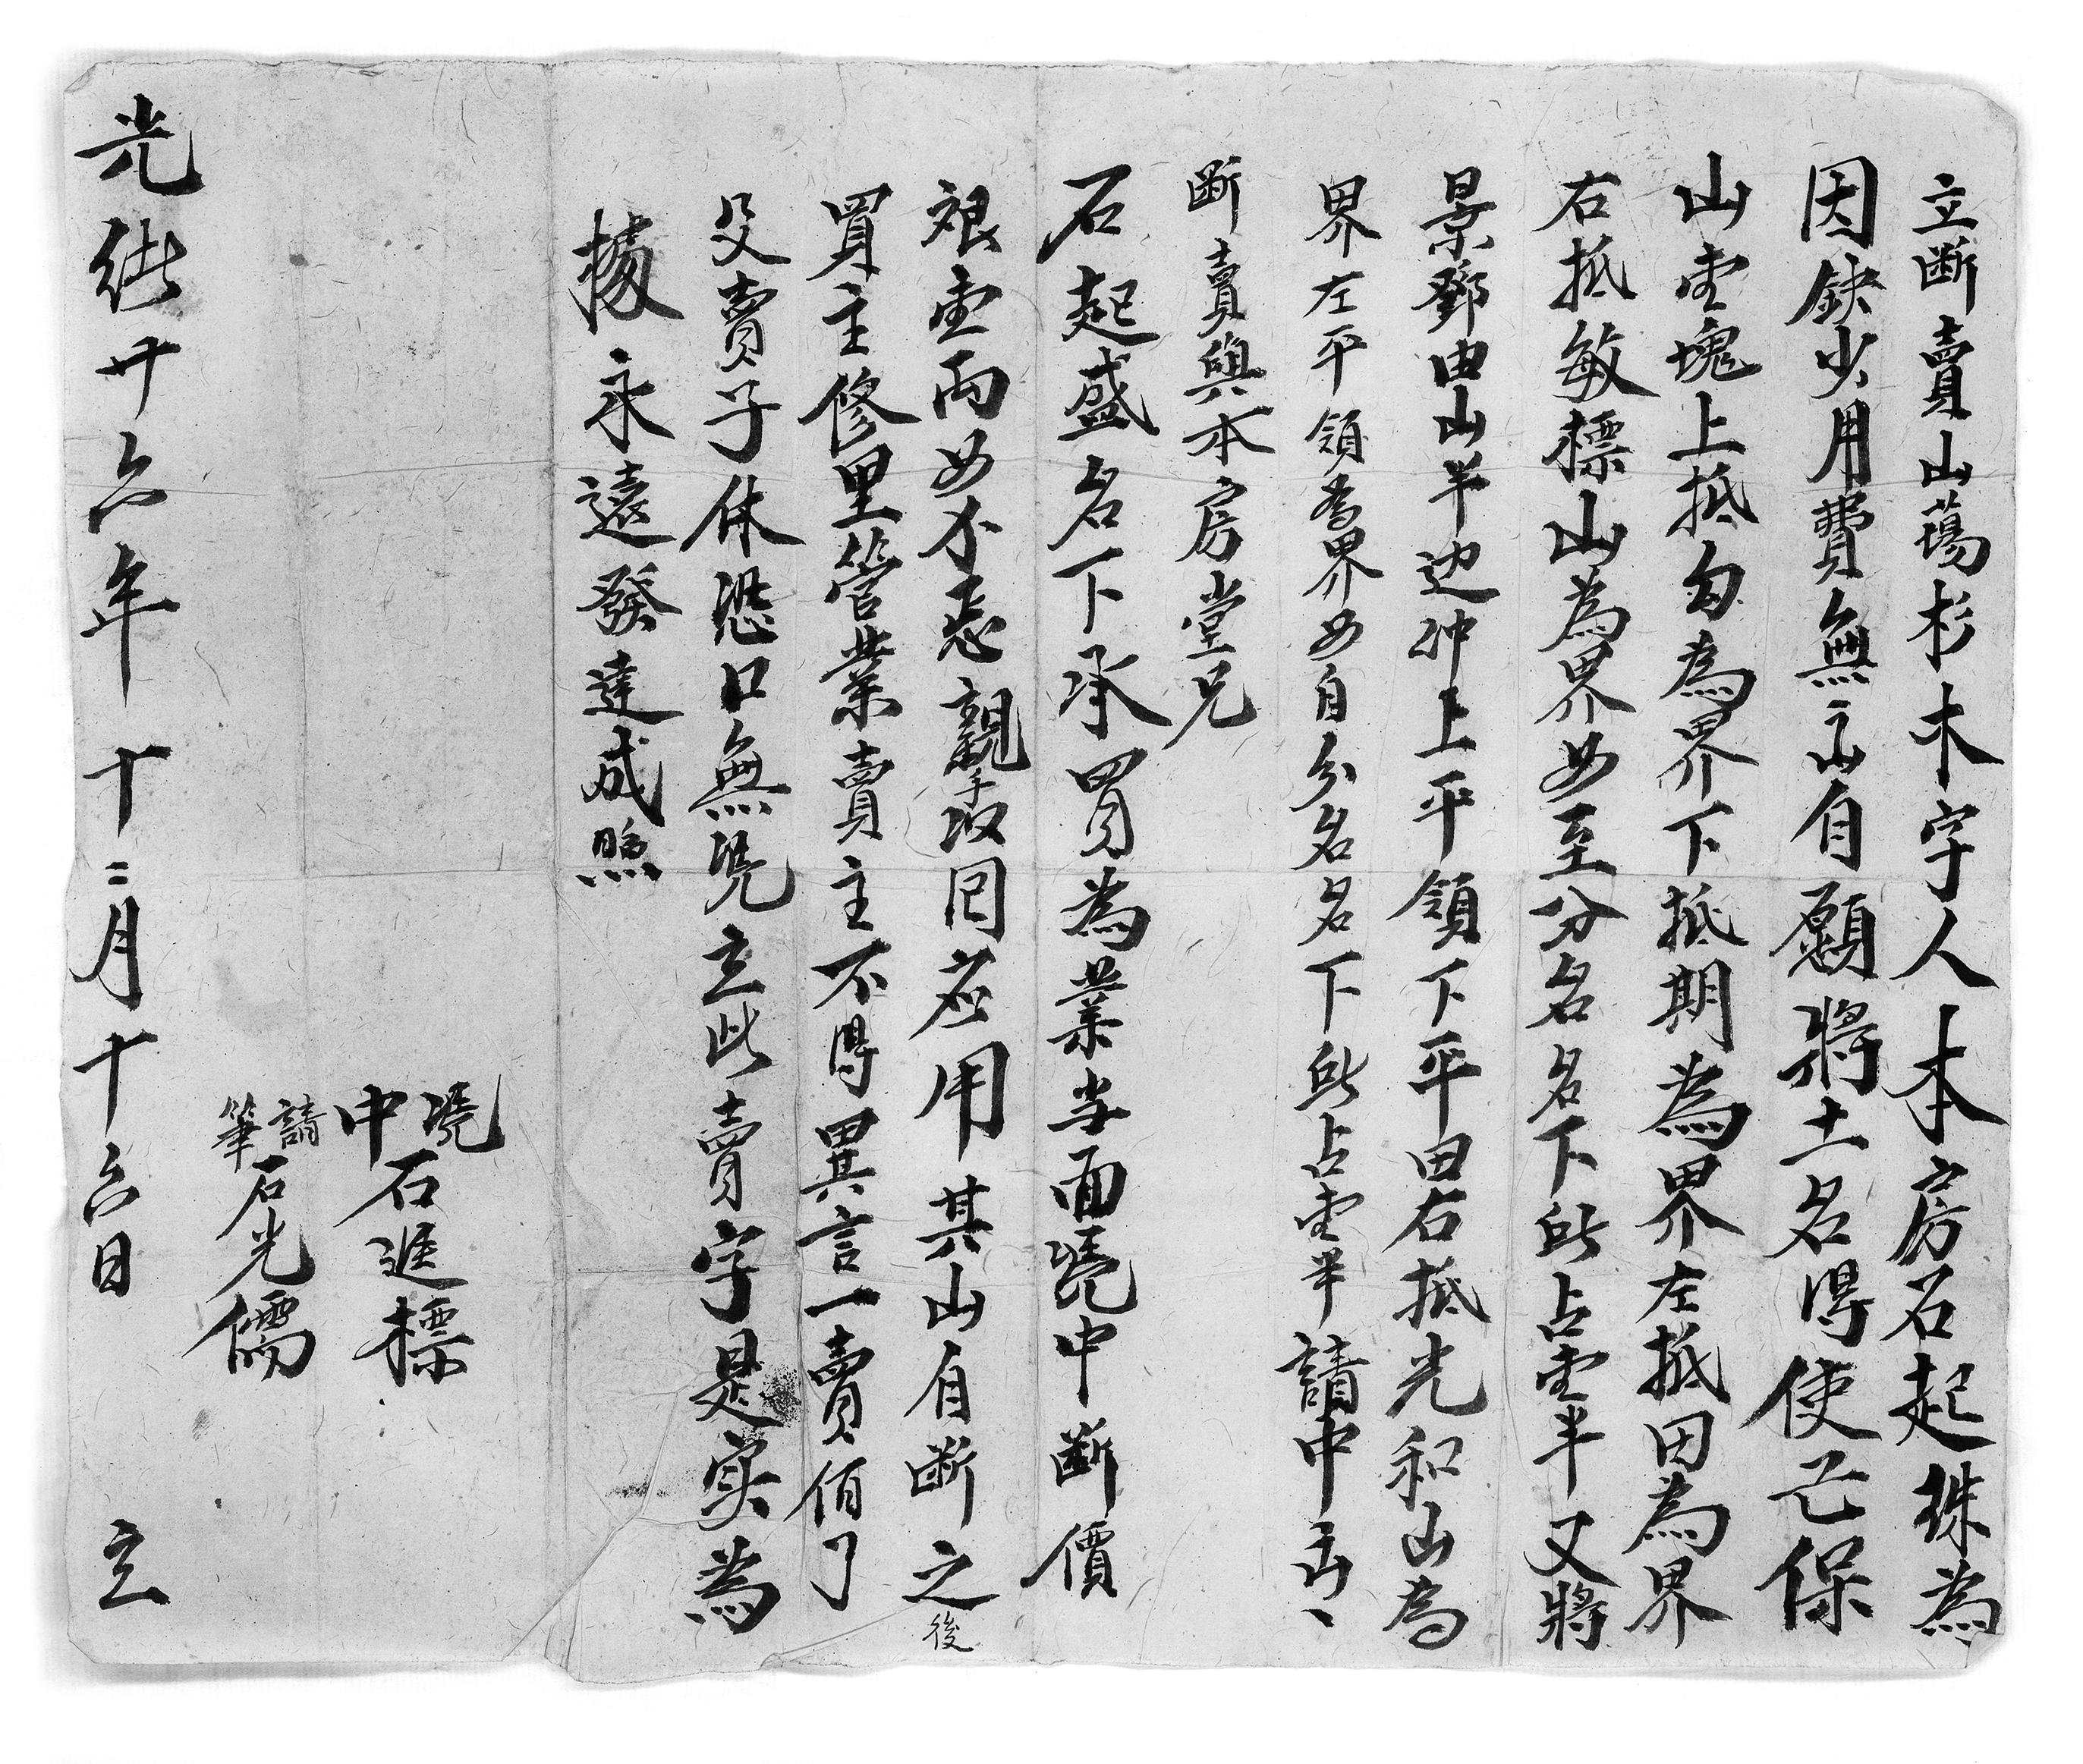 立断賣山蕩杉木字人本房石起珠為
因缺少用費無
自願將土名得使
保
山壹塊上抵勾為界下抵期為界左抵田為界
右抵敏標山為界
至分名名下所占壹半又將
景鄧由山半边冲上平領下平田右抵光和山為
界左平領為界
自分名名下所占壹半請中
断賣與本房堂兄
石起盛名下承買為業当面凴中断價
艰壹両
親手
回应用其山自断之後
買主修里管業賣主不得異言一賣佰了
父賣子休恐口無凴立此賣字是实為
據永遠發達成照
凴中石進標
請筆石光儒
光緒廿六年十二月十六日立